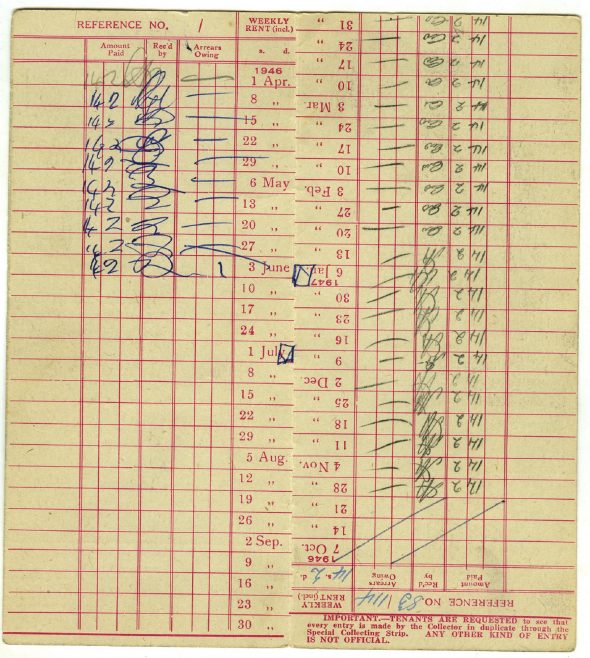 REFERENCE NO. /
WEEKLY RENT (incl.)
Amount Paid Rec'd by Arrears Owing s. d.
1946
14 2 — 1 Apr.
14 2 — 8 „
14 2 — 15 „
14 2 — 22 „
14 2 — 29 „
14 2 — 6 May
14 2 — 13 „
14 2 — 20 „
14 2 — 27 „
14 2 — 3 June
10 „
17 „
24 „
1 July
8 „
15 „
22 „
29 „
5 Aug.
12 „
19 „
26 „
2 Sep.
9 „
16 „
23 „
30 „
REFERENCE NO. 83 \ 114
WEEKLY RENT (incl.)
Amount Paid Rec'd by Arrears Owing s. d.
14 2
1946
7 Oct.
14 „
21 „
14 2 — 28 „
14 2 — 4 Nov.
14 2 — 11 „
14 2 — 18 „
14 2 — 25 „
14 2 — 2 Dec.
14 2 — 9 „
14 2 — 16 „
14 2 — 23 „
14 2 — 30 „
1947
14 2 — 6 Jan.
14 2 — 13 „
14 2 — 20 „
14 2 — 27 „
14 2 — 3 Feb.
14 2 — 10 „
14 2 — 17 „
14 2 — 24 „
14 2 — 3 Mar.
14 2 — 10 „
14 2 — 17 „
14 2 — 24 „
14 2 — 31 „
IMPORTANT.—TENANTS ARE REQUESTED to see that
every entry is made by the Collector in duplicate through the
Special Collecting Strip. ANY OTHER KIND OF ENTRY
IS NOT OFFICIAL.